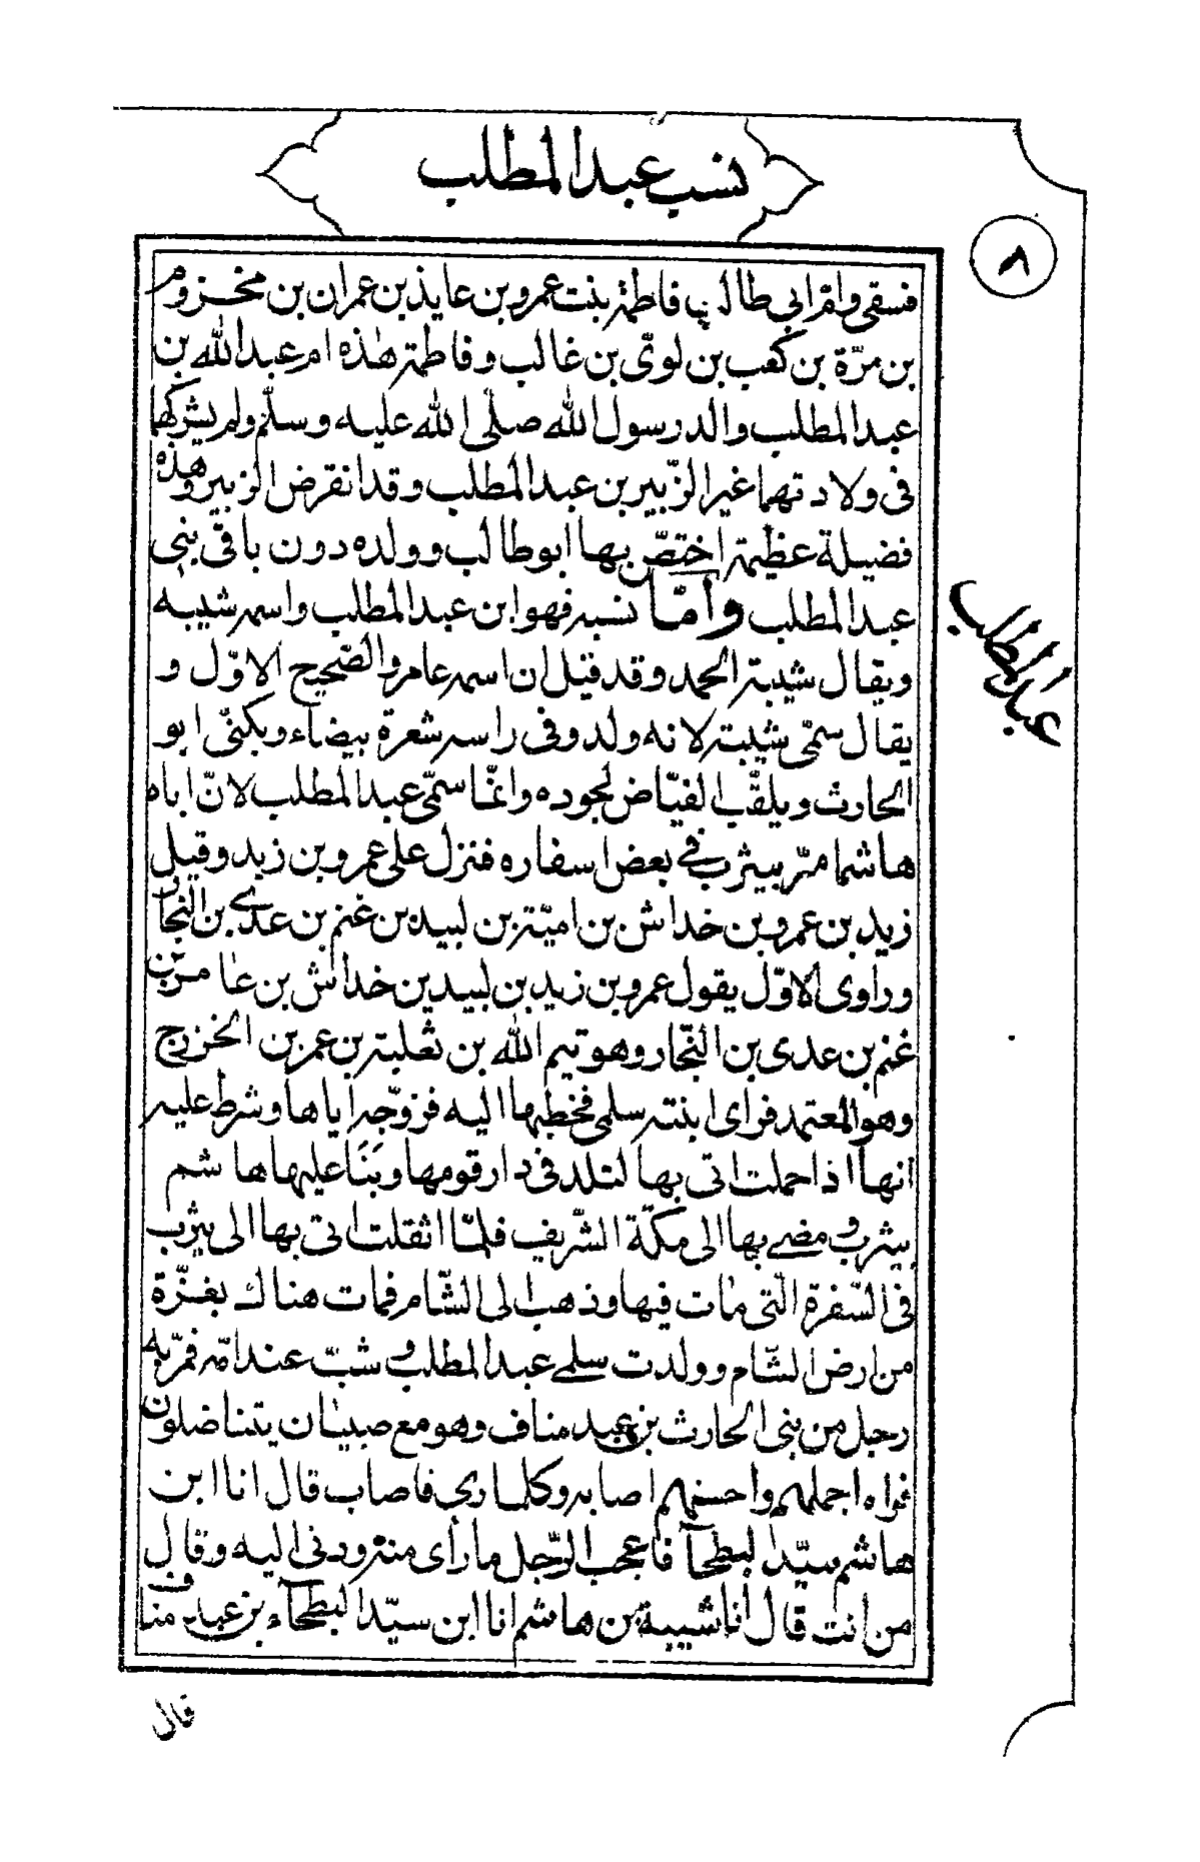 نسب عبد المطلب
٨
فسقى وام ابي طالب فاطمة بنت عمرو بن عايذ بن عمران بن مخزوم
بن مرّة بن كعب بن لوىّ بن غالب وفاطمة هذه ام عبد الله بن
عبد المطلب والد رسول الله صلّى الله عليه وسلّم ولم يشركها
فى ولادتهما غير الزّبير بن عبد المطلب وقد انقرض الزبير وهذه
فضيلة عظيمة اختصّ بها ابو طالب وولده دون باقى بنى
عبد المطلب وامّا نسبه فهو ابن عبد المطلب واسمه شيبه
ويقال شيبة الحمد وقد قيل ان اسمه عامر والصّحيح الاوّل و
يقال سمّى شيبة لانه ولد وفى راسه شعرة بيضاء ويكنّى ابو
الحارث ويلقّب الفيّاض لجوده وانمّا سمّى عبد المطلب لانّ اباه
هاشما مرّ بيثرب في بعض اسفاره فنزل على عمرو بن زيد وقيل
زيد بن عمرو بن خداش بن اميّة بن لبيد بن غنم بن عدي بن النجار
وراوى الاوّل يقول عمرو بن زيد بن لبيد بن خداش بن عامر بن
غنم بن عدى بن النجّار وهو تيم الله بن ثعلبة بن عمر بن الخزرج
وهو المعتمد فراى ابنته سلمى فخطبها اليه فزوّجه اياها وشرط عليه
انها اذا حملت اتى بها لتلد فى دار قومها وبنا عليها هاشم
بيثرب ومضے بها الى مكّة الشّريف فلمّا اثقلت اتى بها الى يثرب
فى السّفرة الّتى مات فيها وذهب الى الشّام فمات هناك بغزّة
من ارض الشّام وولدت سلمے عبد المطلب وشبّ عند امّه فمرّ به
رجل من بنى الحارث بن عبد مناف وهو مع صبيان يتناضلون
فراه اجملهم واحسنهم اصابه وكلما رمى فاصاب قال انا ابن
هاشم سيّد البطحآ فاعجب الرّجل ما رأى منه ودنى اليه وقال
من انت قال انا شيبة بن هاشم انا ابن سيّد البطحآء بن عبد مناف
عبد المطلب
قال